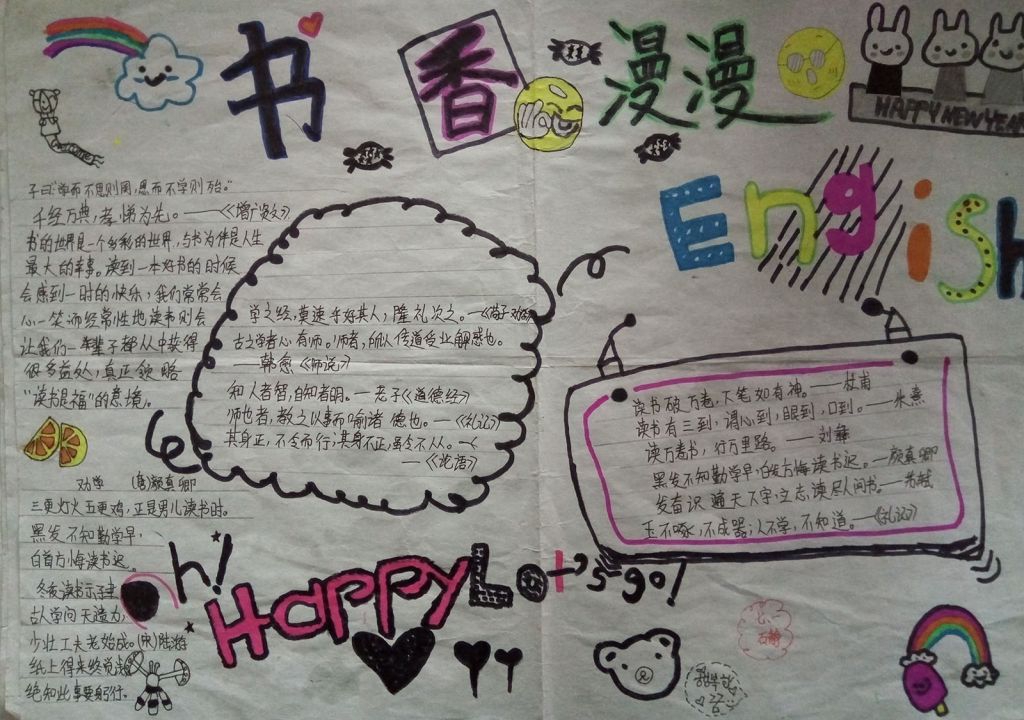 书香漫漫
HAPPY NEW YEAR
English
子曰"学而不思则罔,思而不学则殆。"
千经万典,孝悌为先。——《增广贤文》
书的世界是一个多彩的世界,与书为伴是人生
最大的幸事。读到一本好书的时候
会感到一时的快乐,我们常常会
心一笑而经常性地读书则会
让我们一辈子都从中获得
很多益处,真正领略
"读书是福"的意境。
学之经,莫速乎好其人,隆礼次之。——《荀子·劝学》
古之学者心有师。师者,所以传道受业解惑也。
——韩愈《师说》
知人者智,自知者明。—老子《道德经》
师也者,教之以事而喻诸德也。—《礼记》
其身正,不令而行;其身不正,虽令不从。—
—《论语》
读书破万卷,下笔如有神。——杜甫
读书有三到,谓心到,眼到,口到。——朱熹
读万卷书,行万里路。——刘彝
黑发不知勤学早,白首方悔读书迟。—颜真卿
发奋识遍天下字,立志读尽人间书。——苏轼
玉不啄,不成器;人不学,不知道。—《礼记》
劝学 (唐)颜真卿
三更灯火五更鸡,正是男儿读书时。
黑发不知勤学早,
白首方悔读书迟。
冬夜读书示子聿
古人学问无遗力,
少壮工夫老始成。(宋)陆游
纸上得来终觉浅
绝知此事要躬行。
Oh!
Happy
Let's go!
七、一
石静